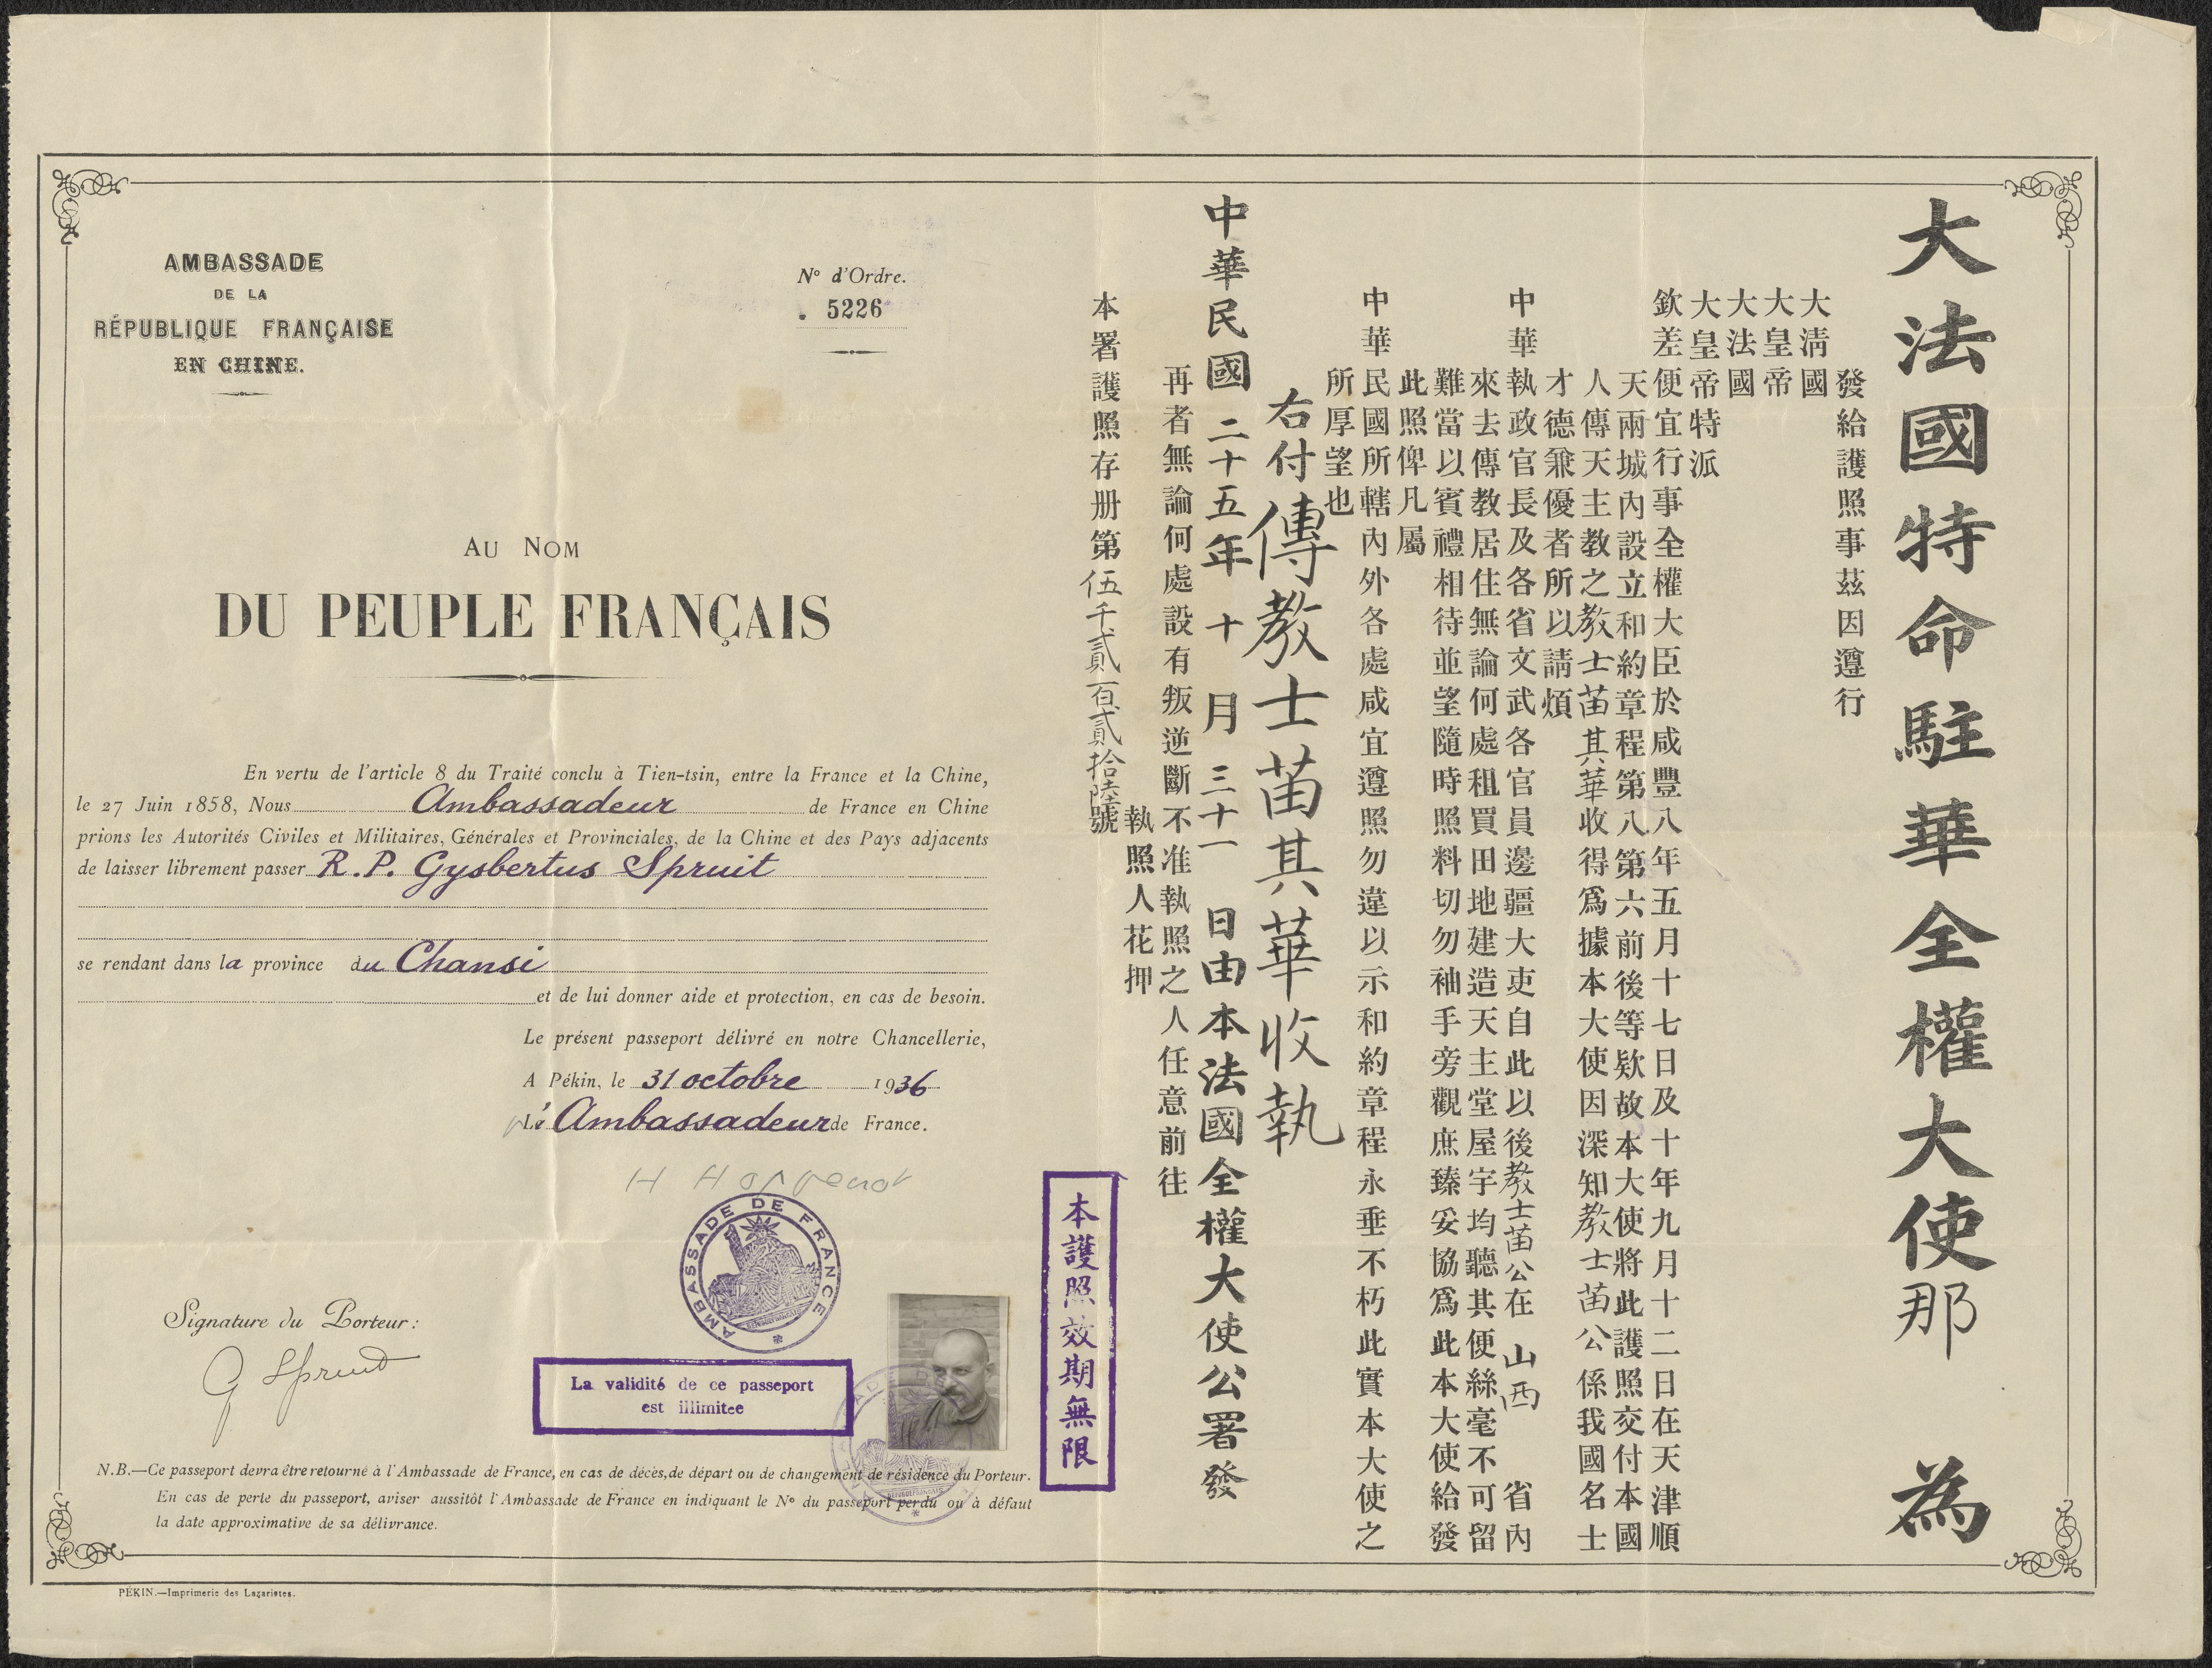 AMBASSADE
DE LA
RÉPUBLIQUE FRANÇAISE
EN CHINE.
Nº d'Ordre.
5226
AU NOM
DU PEUPLE FRANÇAIS
En vertu de l'article 8 du Traité conclu à Tien-tsin, entre la France et la Chine,
le 27 Juin 1858, Nous Ambassadeur de France en Chine
prions les Autorités Civiles et Militaires, Générales et Provinciales, de la Chine et des Pays adjacents
de laisser librement passer R. P. Gysbertus Spruit
se rendant dans la province du Chansi
et de lui donner aide et protection, en cas de besoin.
Le présent passeport délivré en notre Chancellerie,
A Pékin, le 31 octobre 1936
L'Ambassadeur de France.
H Hoppenot
AMBASSADE DE FRANCE
Signature du Porteur:
G Spruit
La validité de ce passeport
est illimitee
N.B.—Ce passeport devra être retourné à l'Ambassade de France, en cas de décès, de départ ou de changement de résidence du Porteur.
En cas de perte du passeport, aviser aussitôt l'Ambassade de France en indiquant le Nº du passeport perdu ou à défaut
la date approximative de sa délivrance.
PÉKIN.—Imprimerie des Lazaristes.
大法國特命駐華全權大使那 為
發給護照事茲因遵行
大淸國
大皇帝
大法國
大皇帝特派
欽差便宜行事全權大臣於咸豐八年五月十七日及十年九月十二日在天津順
天兩城內設立和約章程第八第六前後等欵故本大使將此護照交付本國
人傳天主教之教士苗其華收得爲據本大使因深知教士苗公係我國名士
才德兼優者所以請煩
中華執政官長及各省文武各官員邊疆大吏自此以後教士苗公在 山西 省內
來去傳教居住無論何處租買田地建造天主堂屋宇均聽其便絲毫不可留
難當以賓禮相待並望隨時照料切勿袖手旁觀庶臻妥協爲此本大使給發
此照俾凡屬
中華民國所轄內外各處咸宜遵照勿違以示和約章程永垂不朽此實本大使之
所厚望也
右付傳教士苗其華收執
中華民國二十五年十月三十一日由本法國全權大使公署發
再者無論何處設有叛逆斷不准執照之人任意前往
執照人花押
本署護照存册第伍千貳百貳拾陸號
本護照效期無限